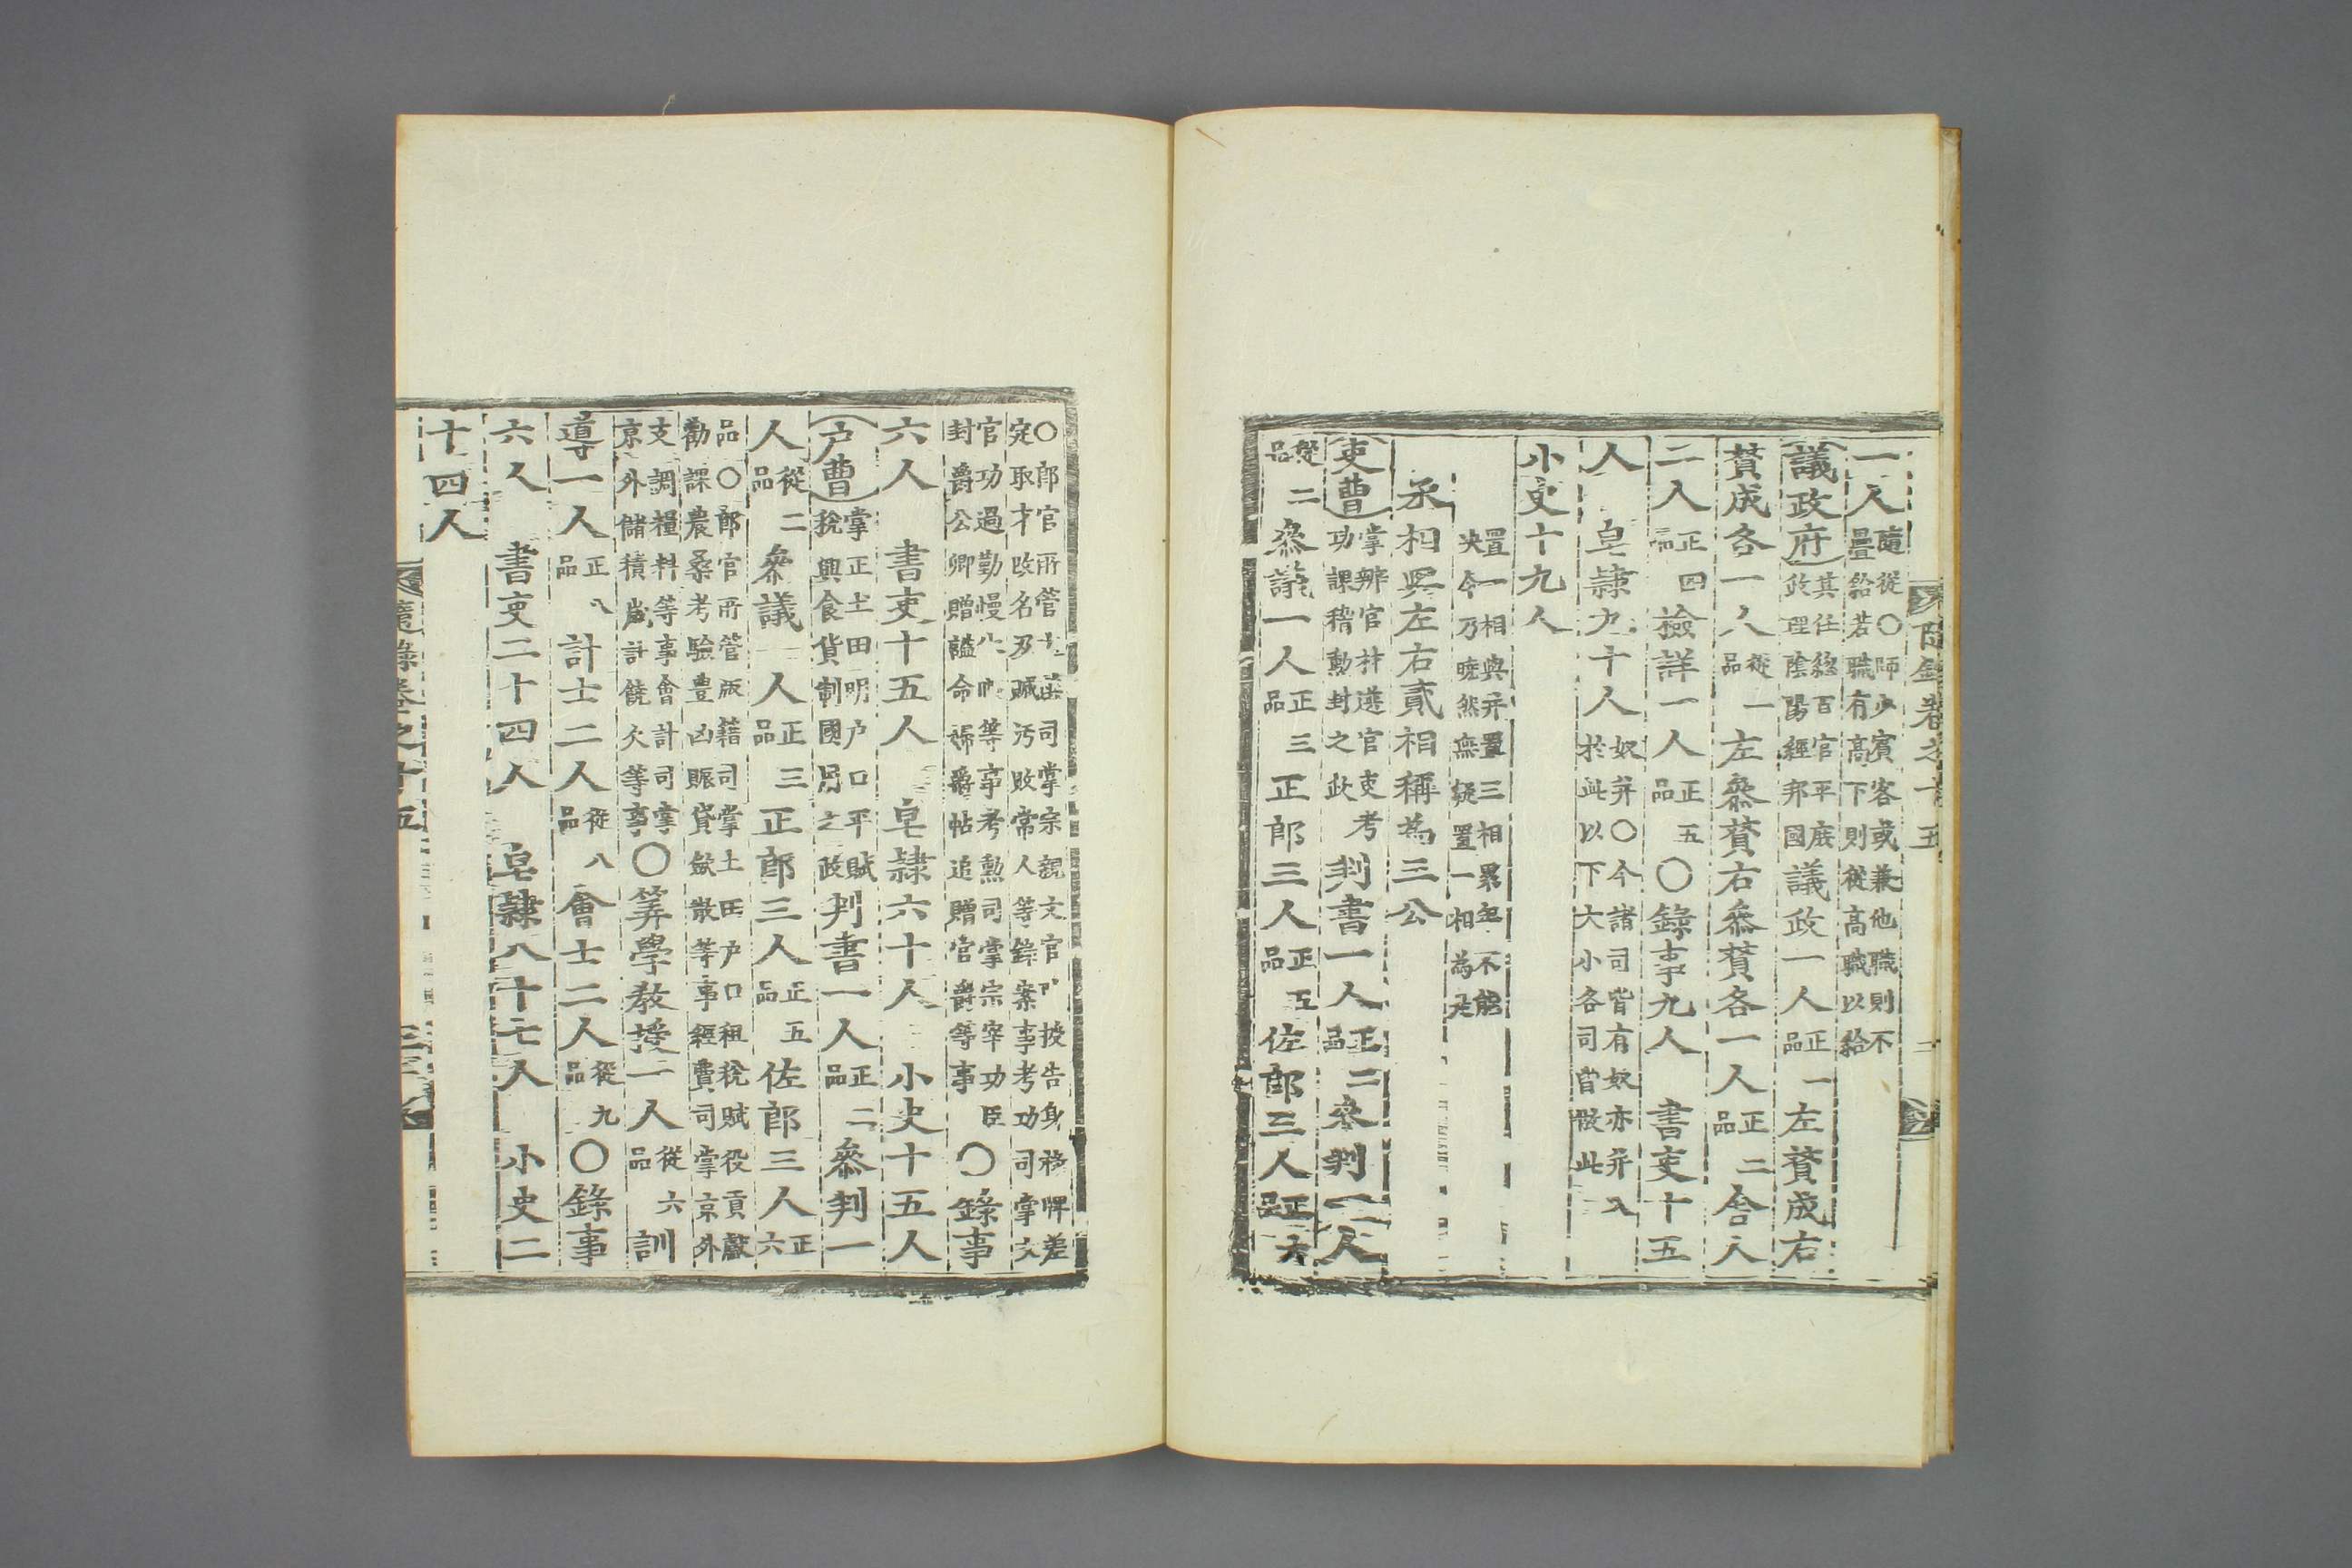 隨錄卷之十五
一人隨從○師少賓客或兼他職則不疊給若職有高下則從高職以給
議政府其任總百官平庶政理陰陽經邦國議政一人正一品左贊成右
贊成各一人從一品左參贊右參贊各一人正二品舍人
二人正四品檢詳一人正五品○錄事九人 書吏十五
人 皂隷九十人奴并○今諸司皆有奴亦并入於此以下大小各司皆倣此
小史十九人
置一相與并置三相累年不能決今乃曉然無疑置一相爲是
丞相與左右貳相稱爲三公
吏曹掌辦官材選官吏考功課稽勳封之政判書一人正二品參判一人
從二品參議一人正三品正郎三人正五品佐郎三人正六品
○郎官所管司掌宗親文官授告身移牌差定取才改名及贓汚敗常人等錄案事考功司掌文
官功過勤慢等事考勳司掌宗宰功臣封爵公卿贈謚命婦爵帖追贈官爵等事○錄事
六人 書吏十五人 皂隷六十人 小史十五人
戶曹掌正土田明戶口平賦稅興食貨制國用之政判書一人正二品參判一
人從二品參議一人正三品正郎三人正五品佐郎三人正六
品○郎官所管版籍司掌土田戶口租稅賦役貢獻勸課農桑考驗豊凶賑貸斂散等事經費司掌京外
支調糧料等事會計司掌京外儲積歲計饒欠等事○筭學敎授一人從六品訓
導一人正八品計士二人從八品會士二人從九品○錄事
六人 書吏二十四人 皂隷八十七人 小史二
十四人
隨錄卷之十五 三